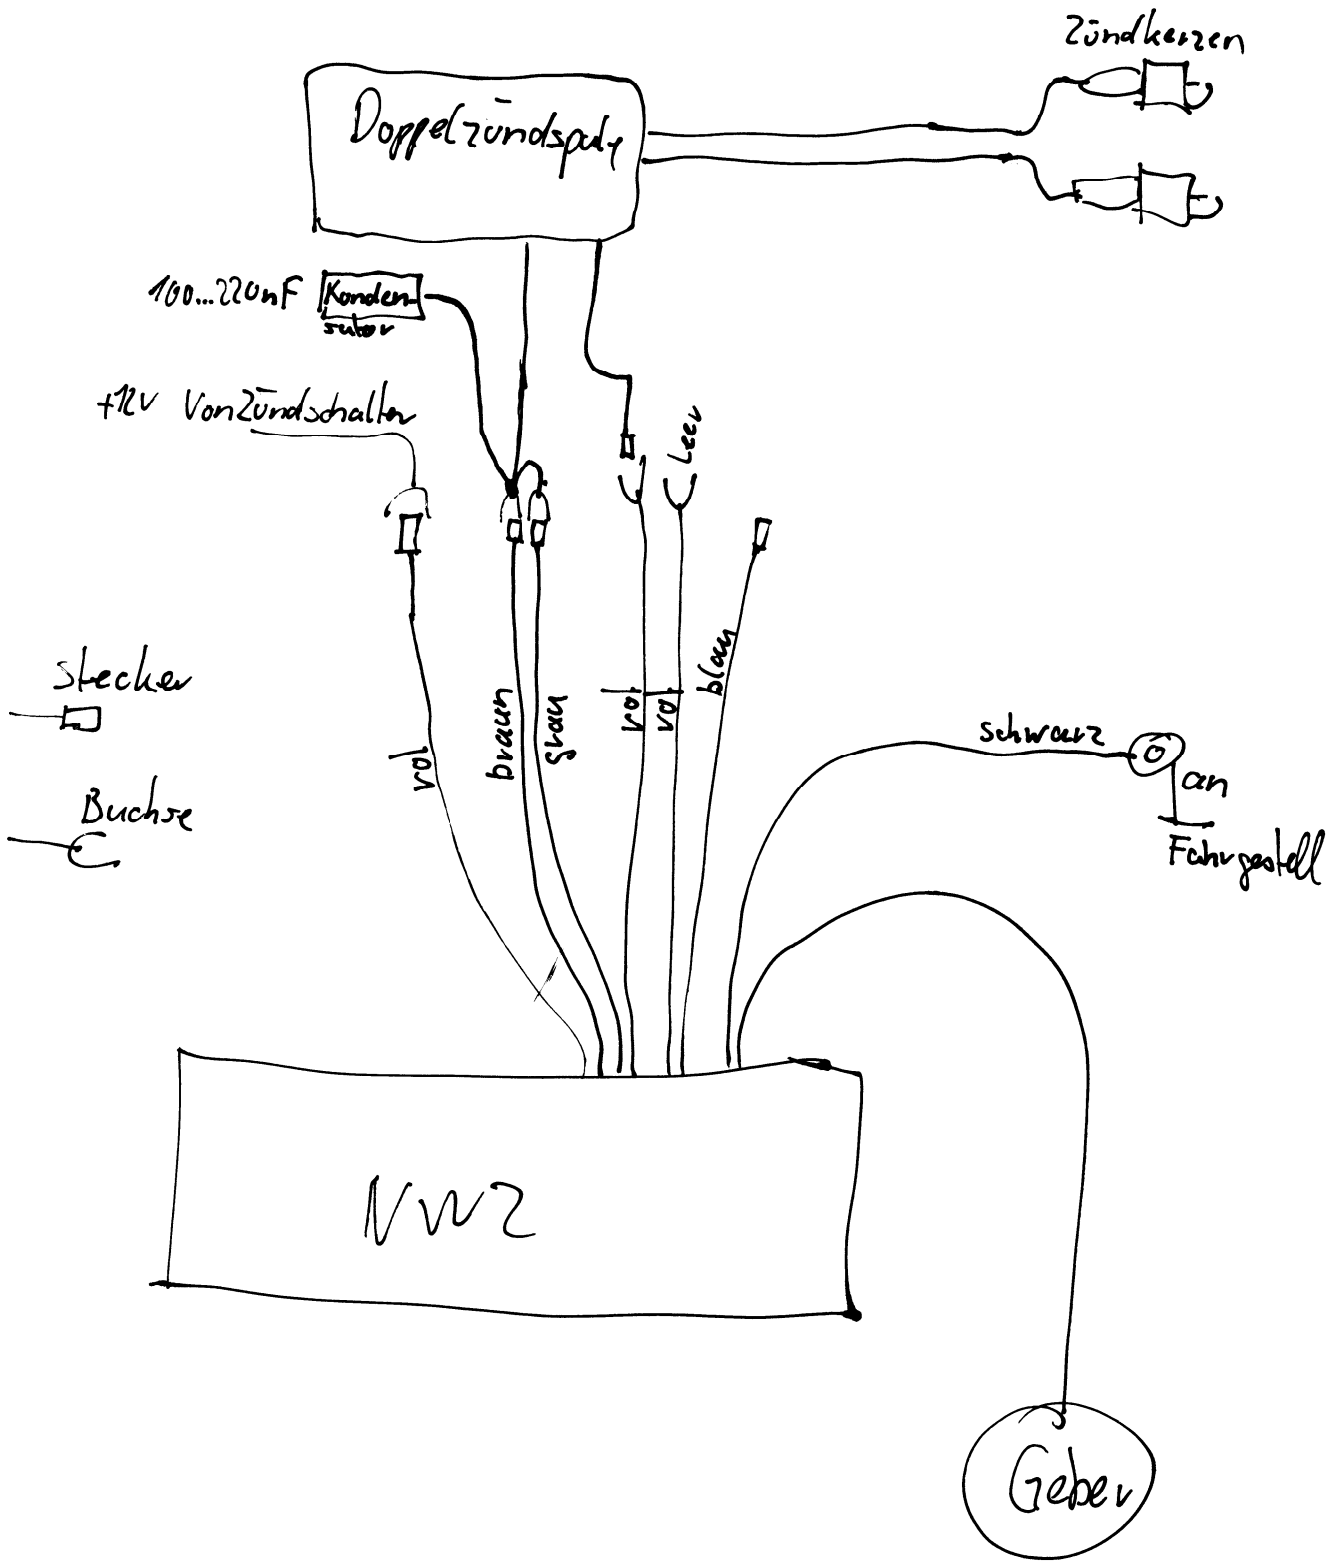 Zündkerzen
Doppelzündspule
100...220nF
Konden-
sator
+12V Von Zündschalter
Leer
Stecker
Buchse
rot
braun
grau
rot
rot
blau
schwarz
an
Fahrgestell
NWZ
Geber